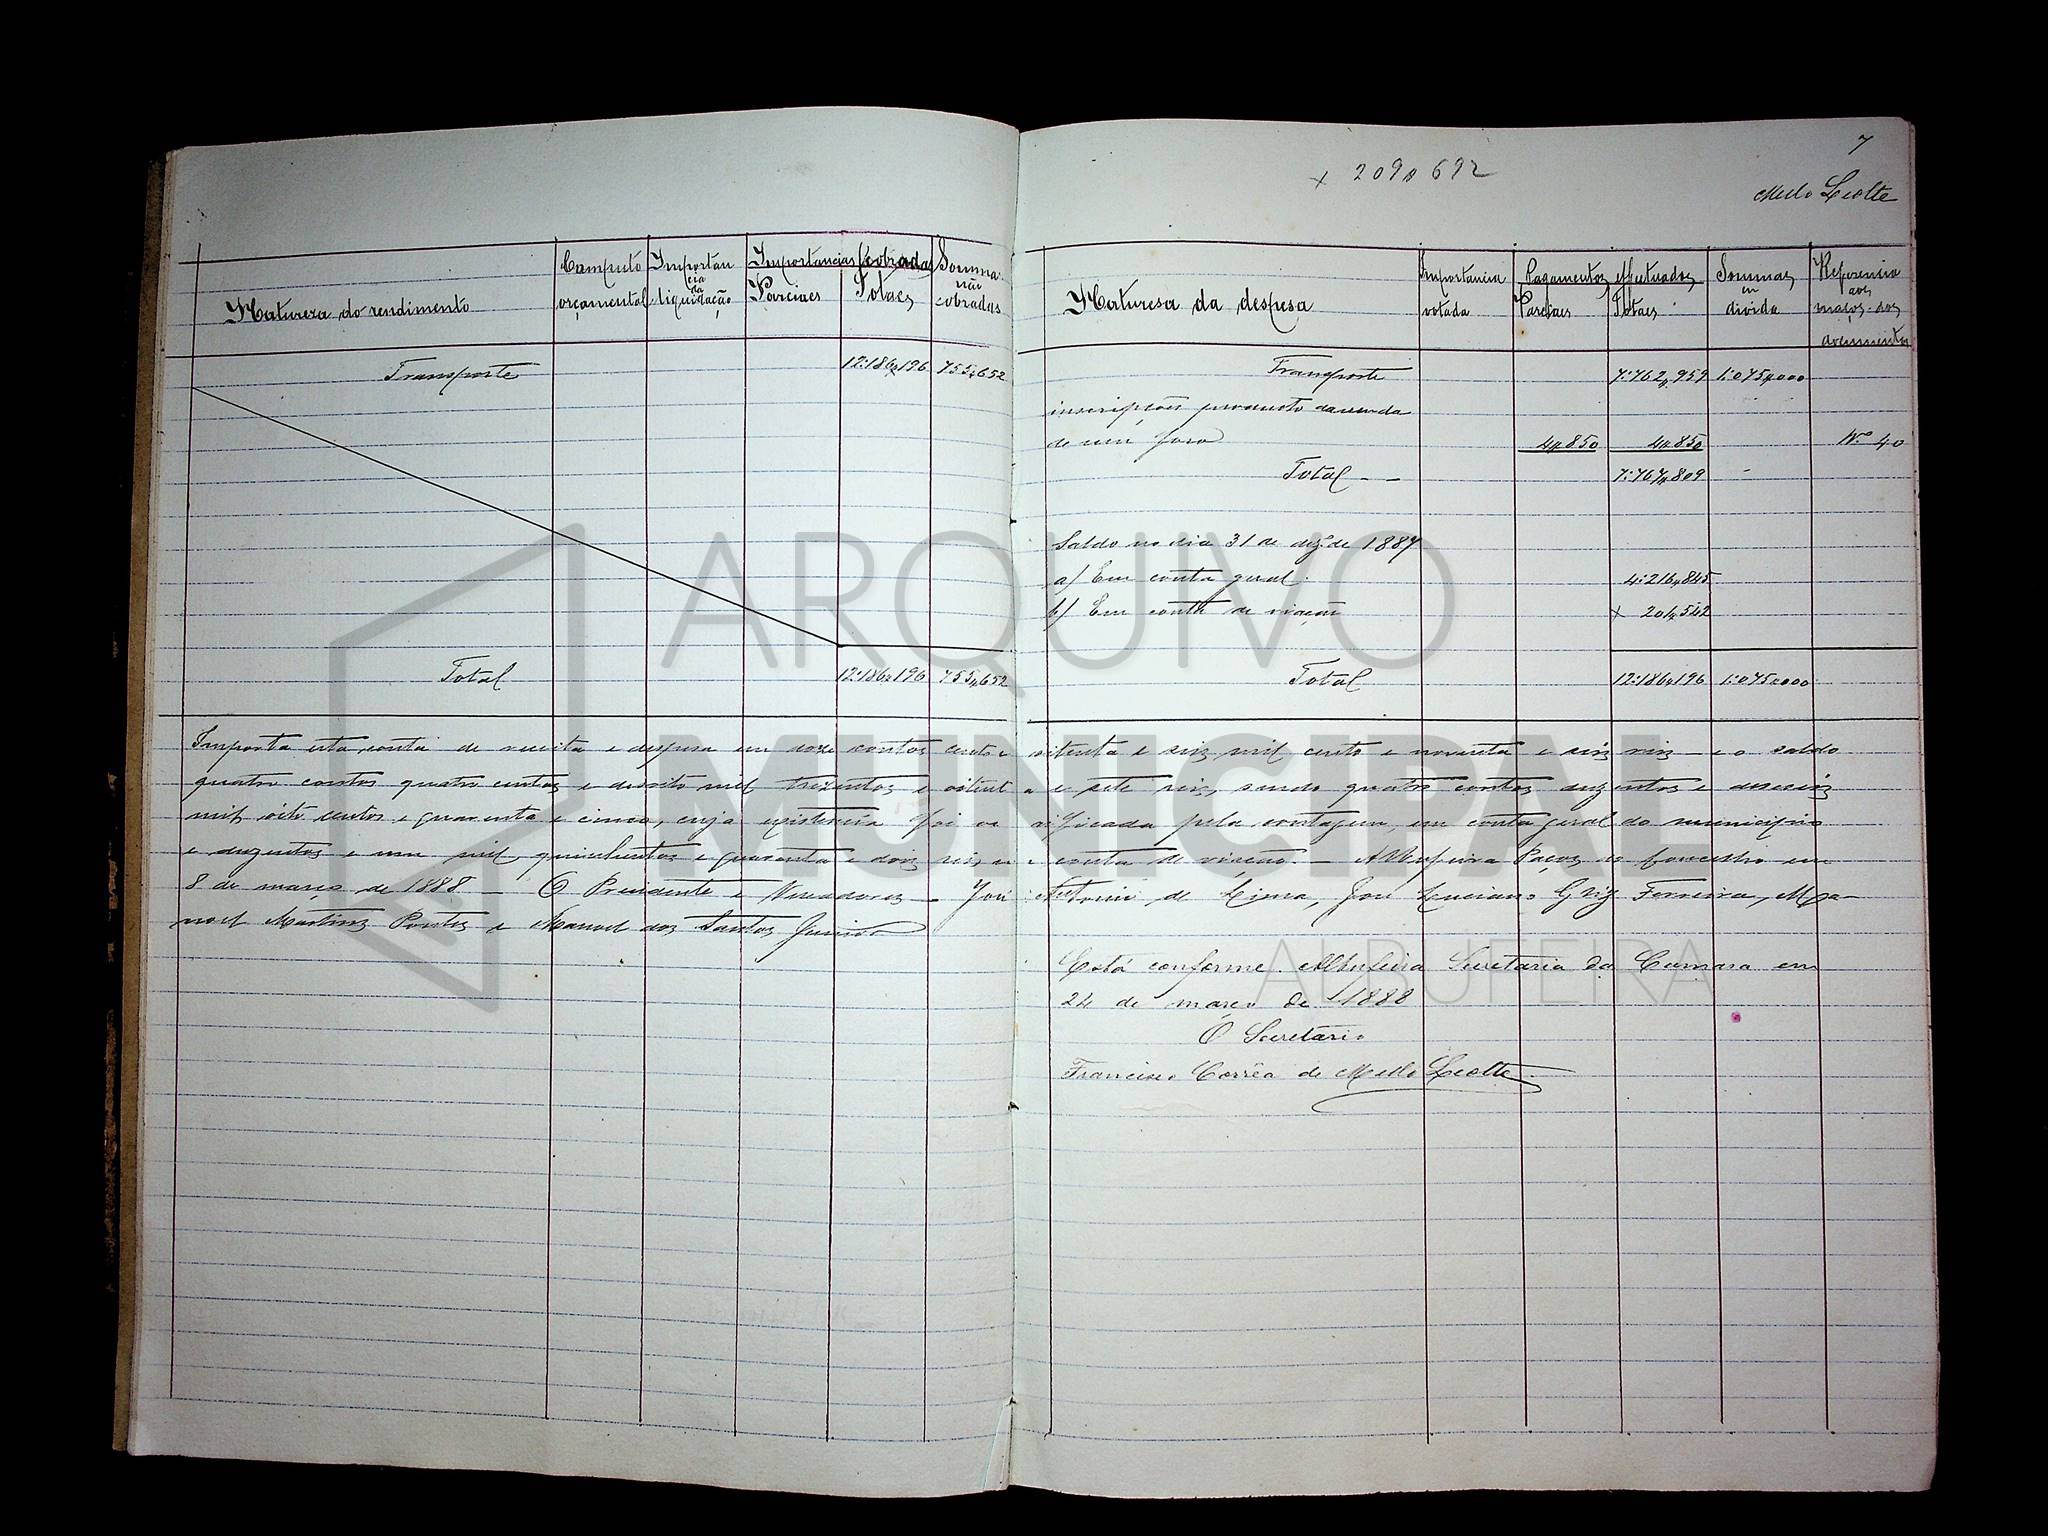 7
× 209$692
Mello Leotte
Natureza do rendimento
Computo orçamental
Importancia da liquidação
Importancias cobradas
Parciaes
Totaes
Sommas não cobradas
Transporte 12:186$196 755$652
Total 12:186$196 755$652
Naturesa da despesa
Importancia votada
Pagamentos effectuados
Parciaes
Totaes
Sommas em divida
Referencia aos maços dos documentos
Transporte 7:762$959 1:075$000
inscripções producto da venda
de um foro 4$850 4$850 Nº 40
Total 7:767$809
Saldo no dia 31 de dezº de 1887
a) Em conta geral 4:216$845
b) Em conta de viação × 201$542
Total 12:186$196 1:075$000
Importa esta conta de receita e despesa em doze contos cento e oitenta e seis mil cento e noventa e seis reis e o saldo
quatro contos quatro centos e desoito mil trezentos e oitenta e sete reis, sendo quatro contos duzentos e deseseis
mil oito centos e quarenta e cinco, cuja existencia foi verificada pela contagem, em conta geral do municipio
e duzentos e um mil, quinhentos e quarenta e dois reis em conta de viação. Albufeira Paços do Concelho em
8 de março de 1888 O Presidente e Vereadores José Antonio de Lima, José Luciano Ferreira, Ma-
noel Martins Pontes e Manoel dos Santos Junior
Está conforme. Albufeira Secretaria da Camara em
24 de março de 1888
O Secretario
Francisco Corrêa de Mello Leotte
ARQUIVO
MUNICIPAL
ALBUFEIRA